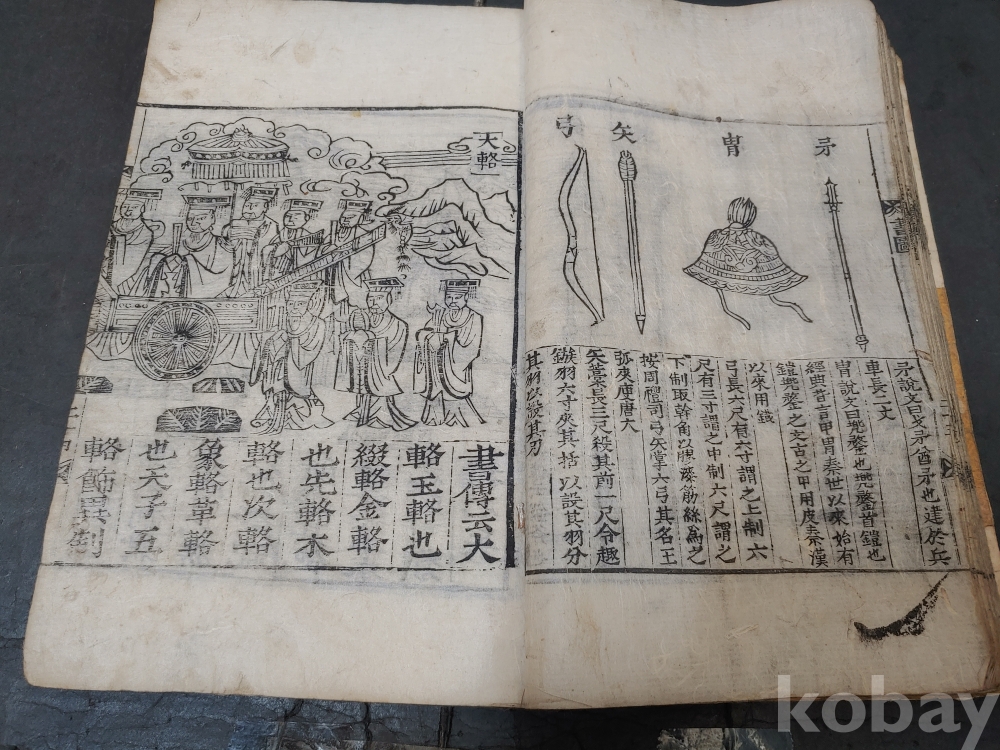 矛
冑
矢
弓
矛說文曰文矛酋矛也建於兵
車長二丈
冑說文曰兜鍪也兜鍪首鎧也
經典皆言甲冑秦世以來始有
鎧兜鍪之文古之甲用皮秦漢
以來用鐵
弓長六尺有六寸謂之上制六
尺有三寸謂之中制六尺謂之
下制取幹角以膠漆筋絲爲之
按周禮司弓矢掌六弓其名王
弧夾庾唐大
矢槀長三尺殺其前一尺令趨
鏃羽六寸夾其括以設其羽分
其羽以設其刃
大輅
書傳云大
輅玉輅也
綴輅金輅
也先輅木
輅也次輅
象輅革輅
也天子五
輅飾異制
kobay